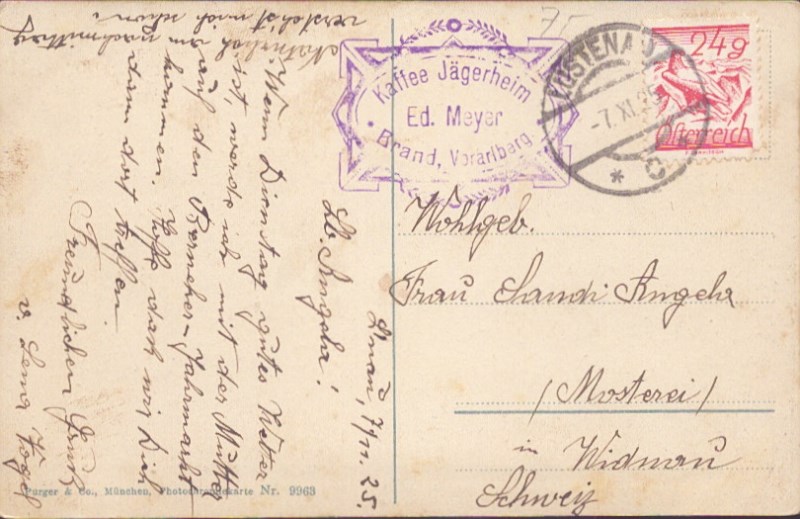 Natürlich am nachmittag
verstehst mich schon!
Lnau, 7/11. 25.
Lb. Angela!
Wenn Dienstag gutes Wetter
ist, werde ich mit der Mutter
auf den Bernecker-Jahrmarkt
kommen. Hoffe daß wir Dich
dann dort treffen.
Freundlichen Gruß
v. Lena Vogel
Kaffee Jägerheim
Ed. Meyer
Brand, Vorarlberg
LUSTENAU
-7.XI.25
* C *
24g
Österreich
Wohlgeb.
Frau Sandi Angela
(Mosterei)
in Widnau
Schweiz
Purger & Co., München, Photochromiekarte Nr. 9963